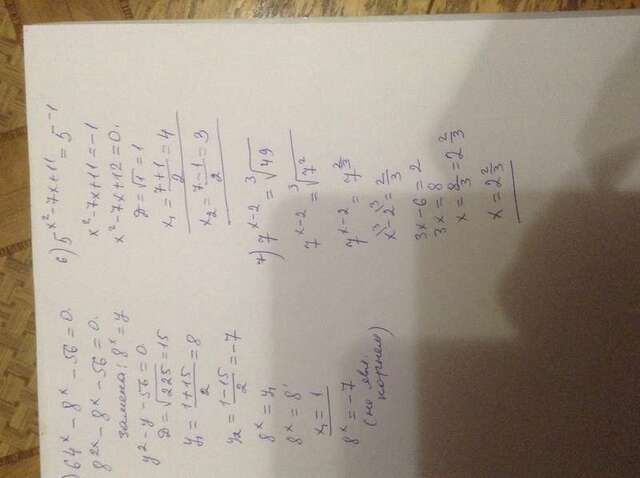 ) 64ˣ - 8ˣ - 56 = 0.
8²ˣ - 8ˣ - 56 = 0.
замена: 8ˣ = y
y² - y - 56 = 0
D = √225 = 15
y₁ = (1+15)/2 = 8
y₂ = (1-15)/2 = -7
8ˣ = y₁
8ˣ = 8¹
x₁ = 1
8ˣ = -7
(не явл.
корнем)
6) 5^(x²-7x+11) = 5⁻¹
x² - 7x + 11 = -1
x² - 7x + 12 = 0.
D = √1 = 1
x₁ = (7+1)/2 = 4
x₂ = (7-1)/2 = 3
7) 7^(x-2) = ³√49
7^(x-2) = ³√7²
7^(x-2) = 7^(2/3)
x\³ - 2\³ = 2/3
3x - 6 = 2
3x = 8
x = 8/3 = 2 2/3
x = 2 2/3